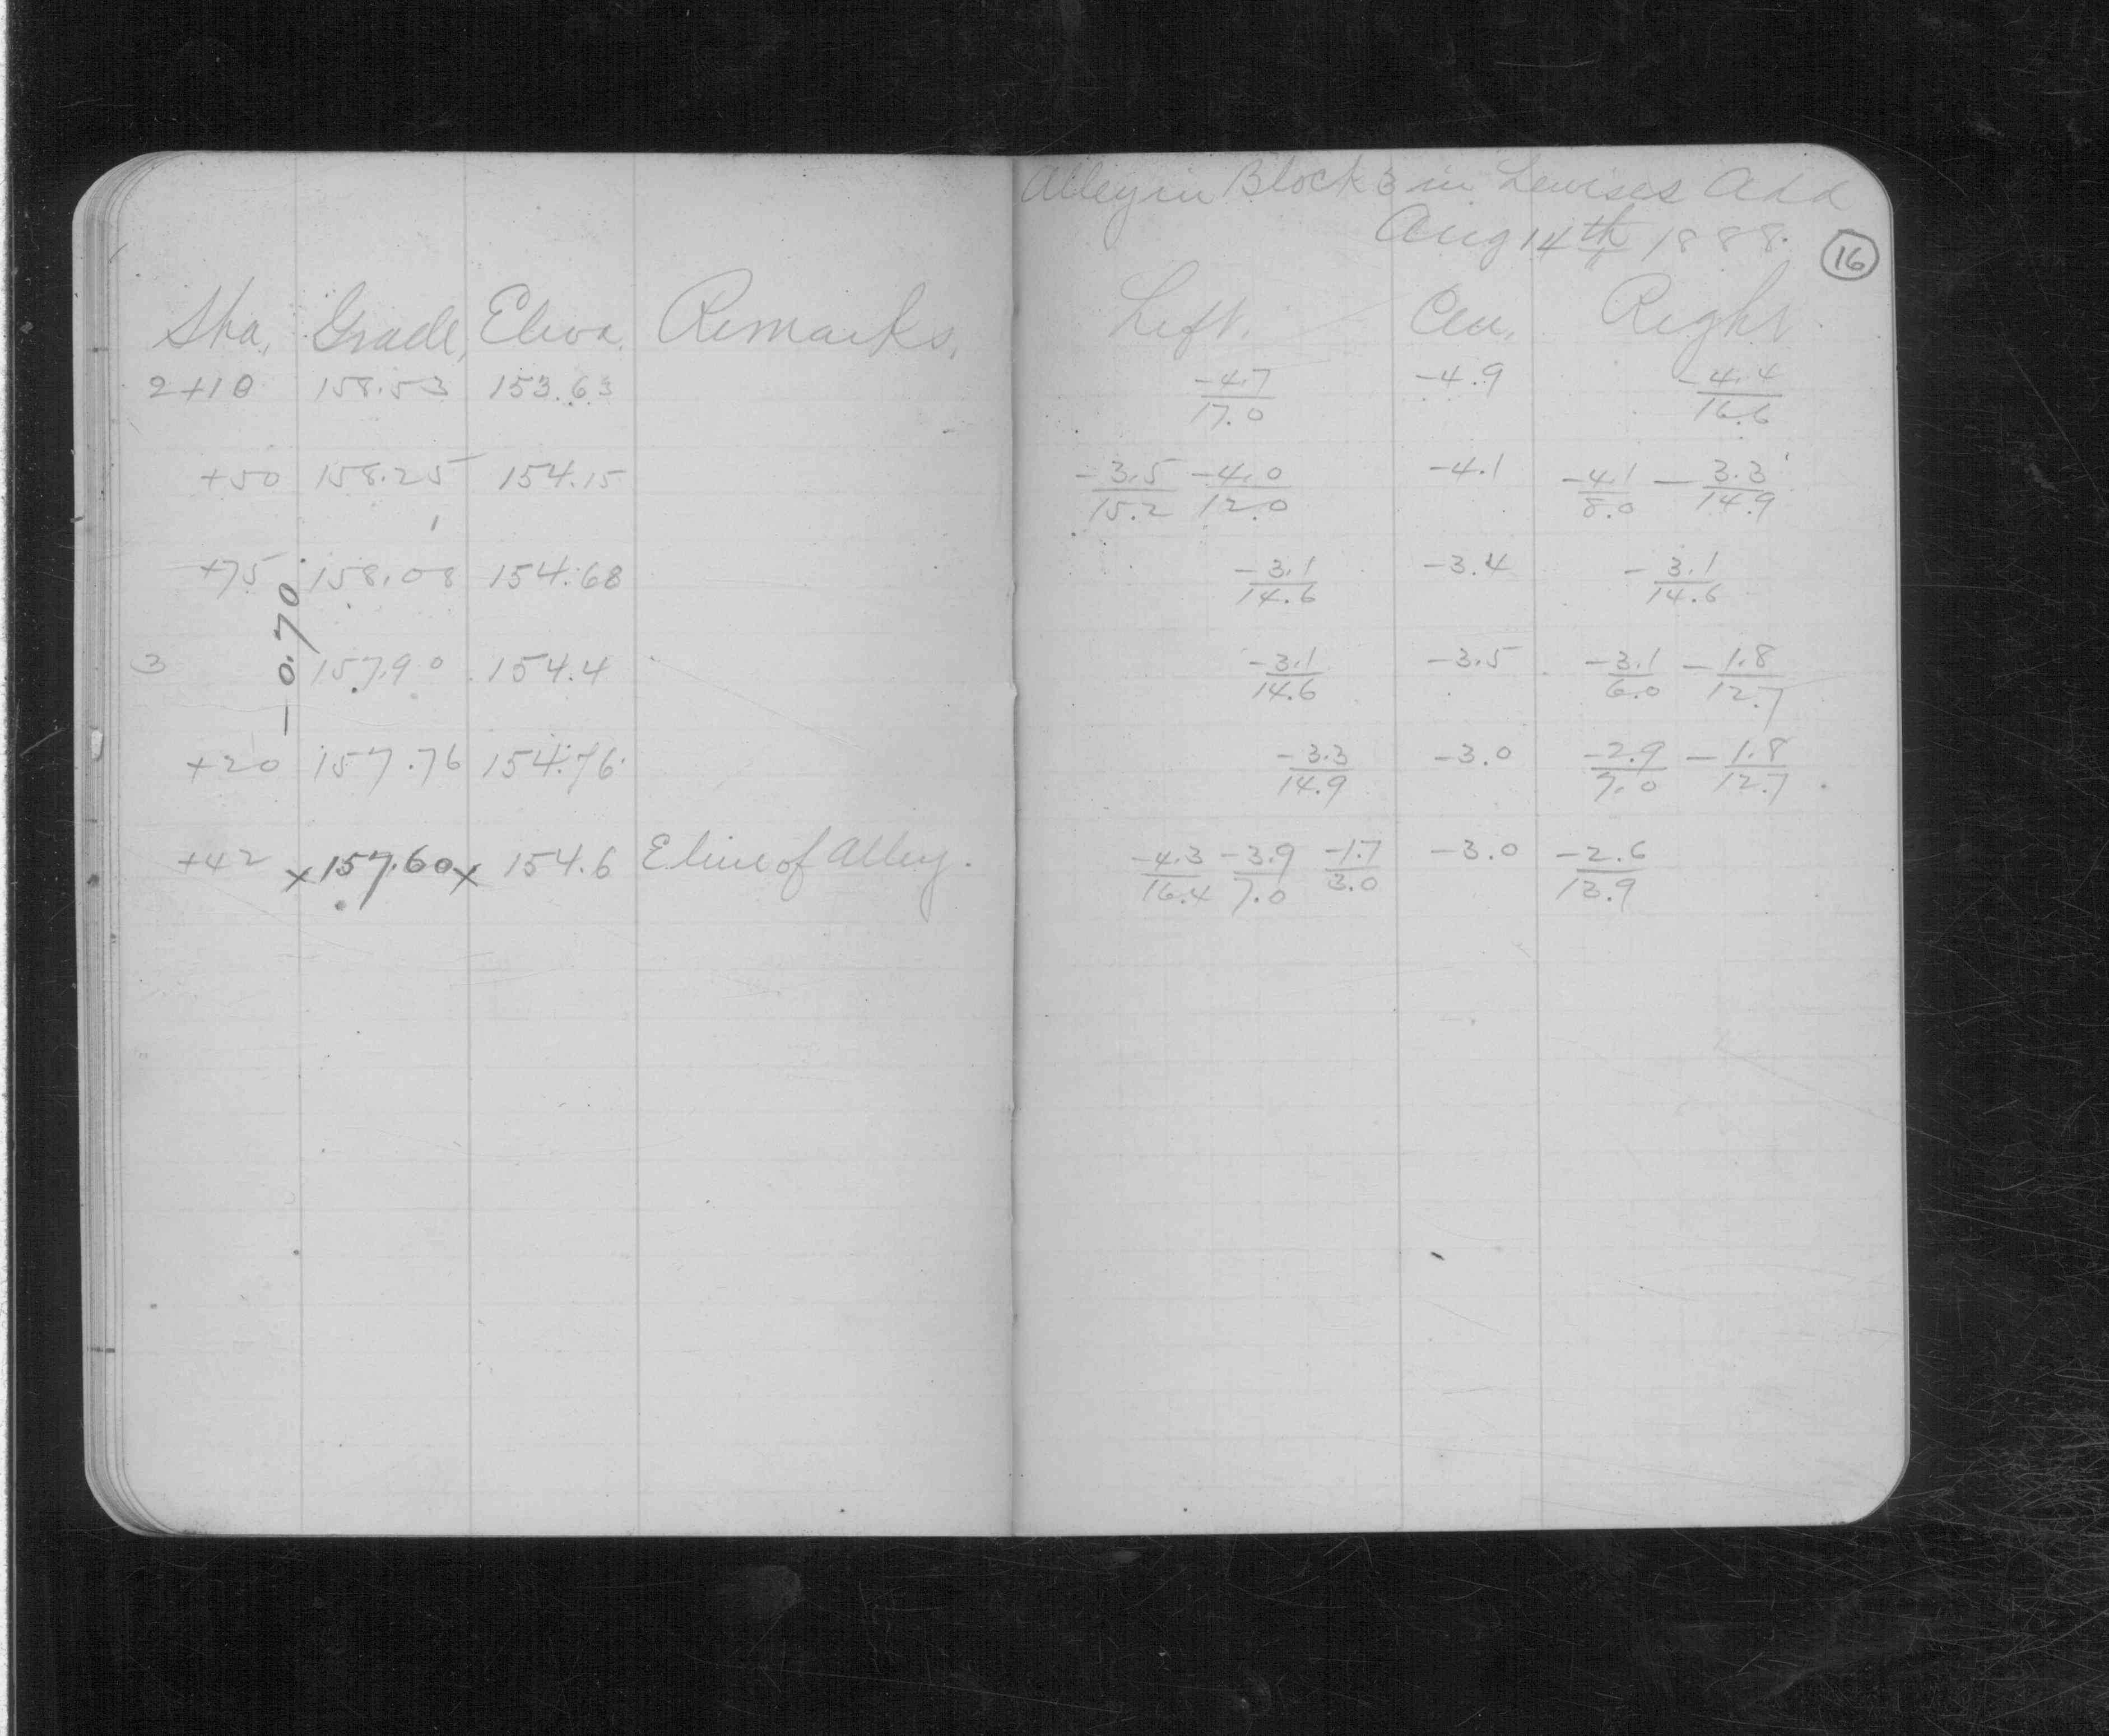 Alley in Block 3 in Lewises Add
Aug 14th 1888.
16
Sta. Grade, Eleva. Remarks. Left. Cen. Right
2+10 158.53 153.63 -4.7/17.0 -4.9 -4.4/16.6
+50 158.25 154.15 -3.5/15.2 -4.0/12.0 -4.1 -4.1/8.0 -3.3/14.9
+75 158.08 154.68 -3.1/14.6 -3.4 -3.1/14.6
-0.70
3 157.90 154.4 -3.1/14.6 -3.5 -3.1/6.0 -1.8/12.7
+20 157.76 154.76 -3.3/14.9 -3.0 -2.9/7.0 -1.8/12.7
+42 x157.60x 154.6 E line of Alley. -4.3/16.4 -3.9/7.0 -1.7/3.0 -3.0 -2.6/13.9